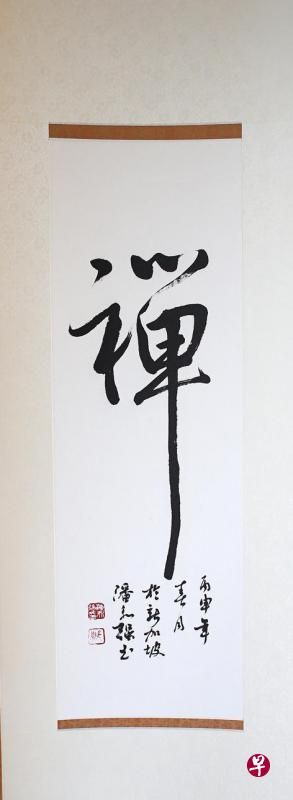 禅
丙申年
春月
於新加坡
潘 书
早